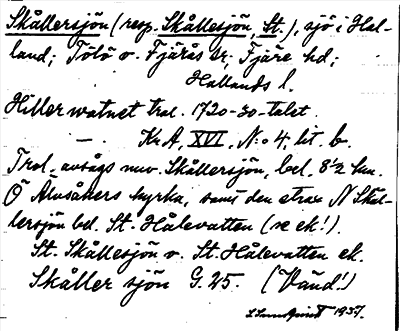 Skållersjön (resp. Skållesjön, St.), sjö i Hal-
land; Tölö o. Fjärås sr; Fjäre hd;
Hallands l.
Hiller watnet trol. 1720-30-talet.
— Kr.A, XVI, N:o 4, lit. b.
Trol. avsågs nuv. Skållersjön, bel. 8½ km.
Ö Älvsåkers kyrka, samt den strax N Skål-
lersjön bel. St. Hålevatten (se ek!).
St. Skållesjön o. St. Hålevatten ek.
Skåller sjön G. 25. (Vänd!)
1937.